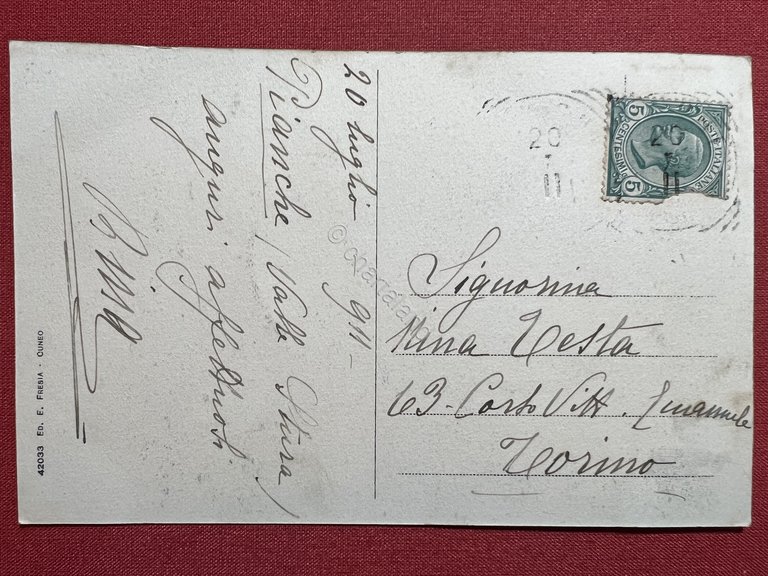 20 luglio 911-
Pianche (Valle Stura)
auguri affettuosi
42033 ED. E. FRESIA - CUNEO
POSTE ITALIANE
CENTESIMI
5
5
20
11
20
11
Signorina
Nina Testa
63- Corso Vitt. Emanuele
Torino